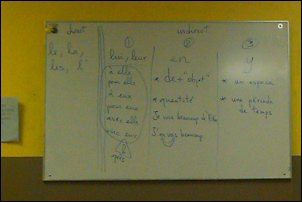 direct
le, la,
les, l'
indirect
①
lui, leur
à elle
pour elle
à eux
pour eux
avec elle
avec eux
②
en
* de + "objet"
* quantité
J'en
beaucoup
J'en
beaucoup
③
y
* un espace
* une période
de temps